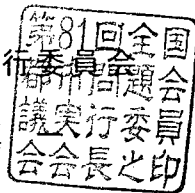 行委員会
第81回全国
都市問題会
議実行委員
会会長之印